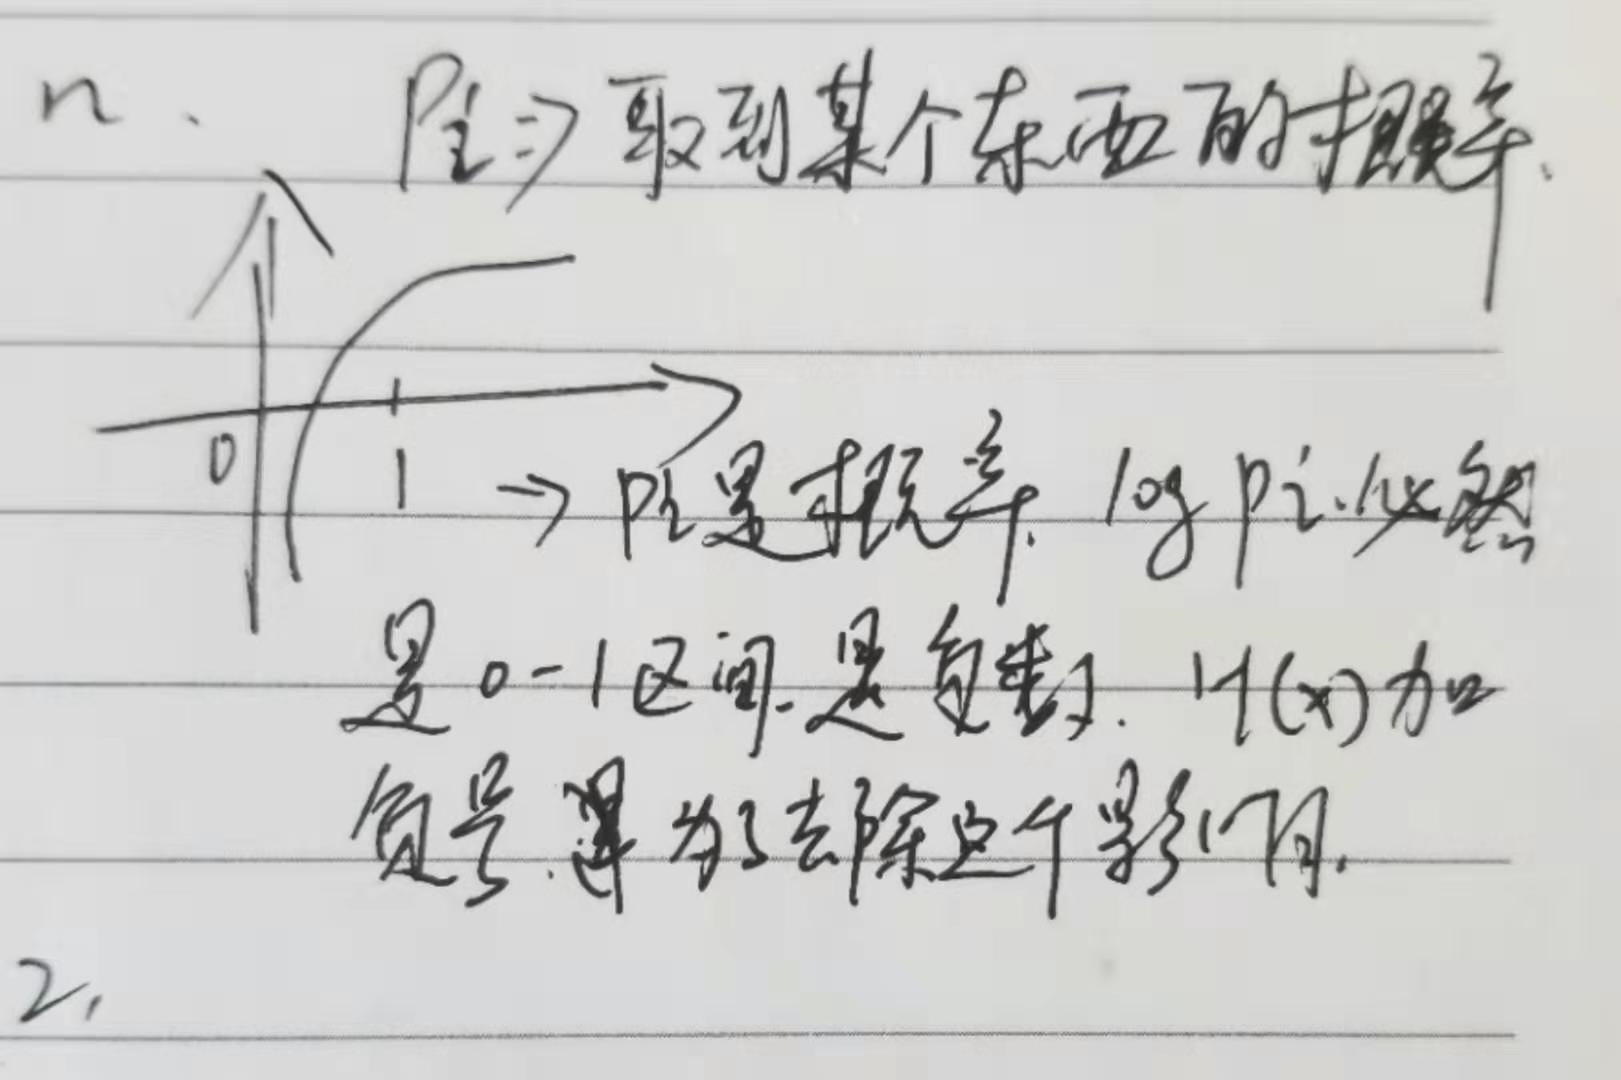 n. Pi => 取到某个东西的概率.
0 1 → pi是概率. log pi. 必然
是0-1区间. 是负数. H(x)加
负号. 是为了去除这个影响.
2.